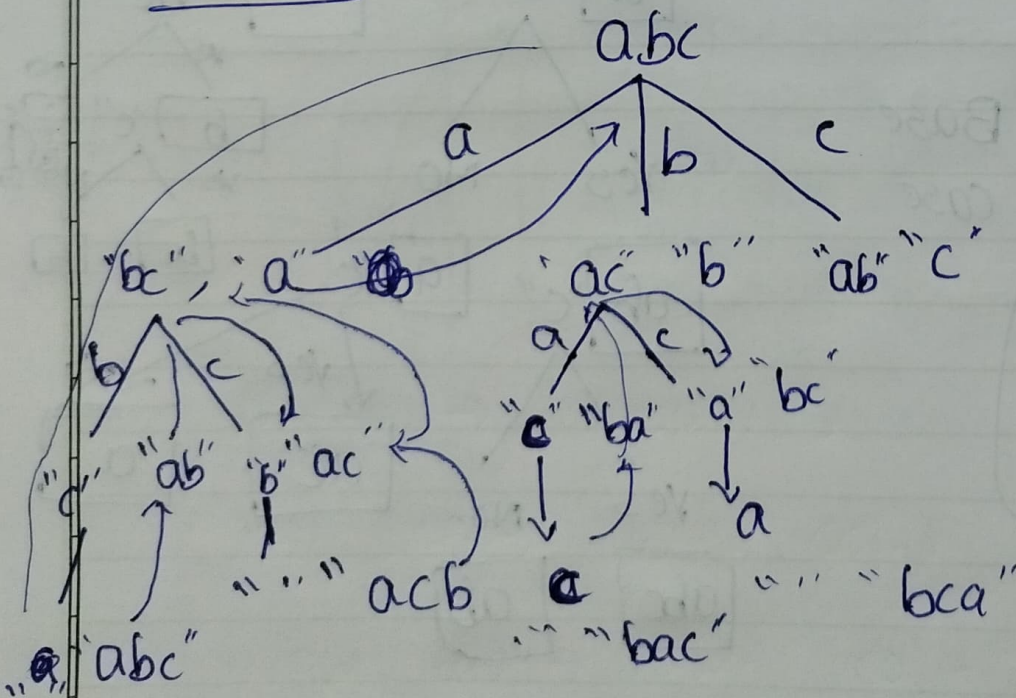 abc
a b c
"bc", "a" "ac" "b" "ab" "c"
b c a c
"c" "ab" "b" "ac" "c" "ba" "a" "bc"
a
" " acb c " " "bca"
" " "abc" " " "bac"